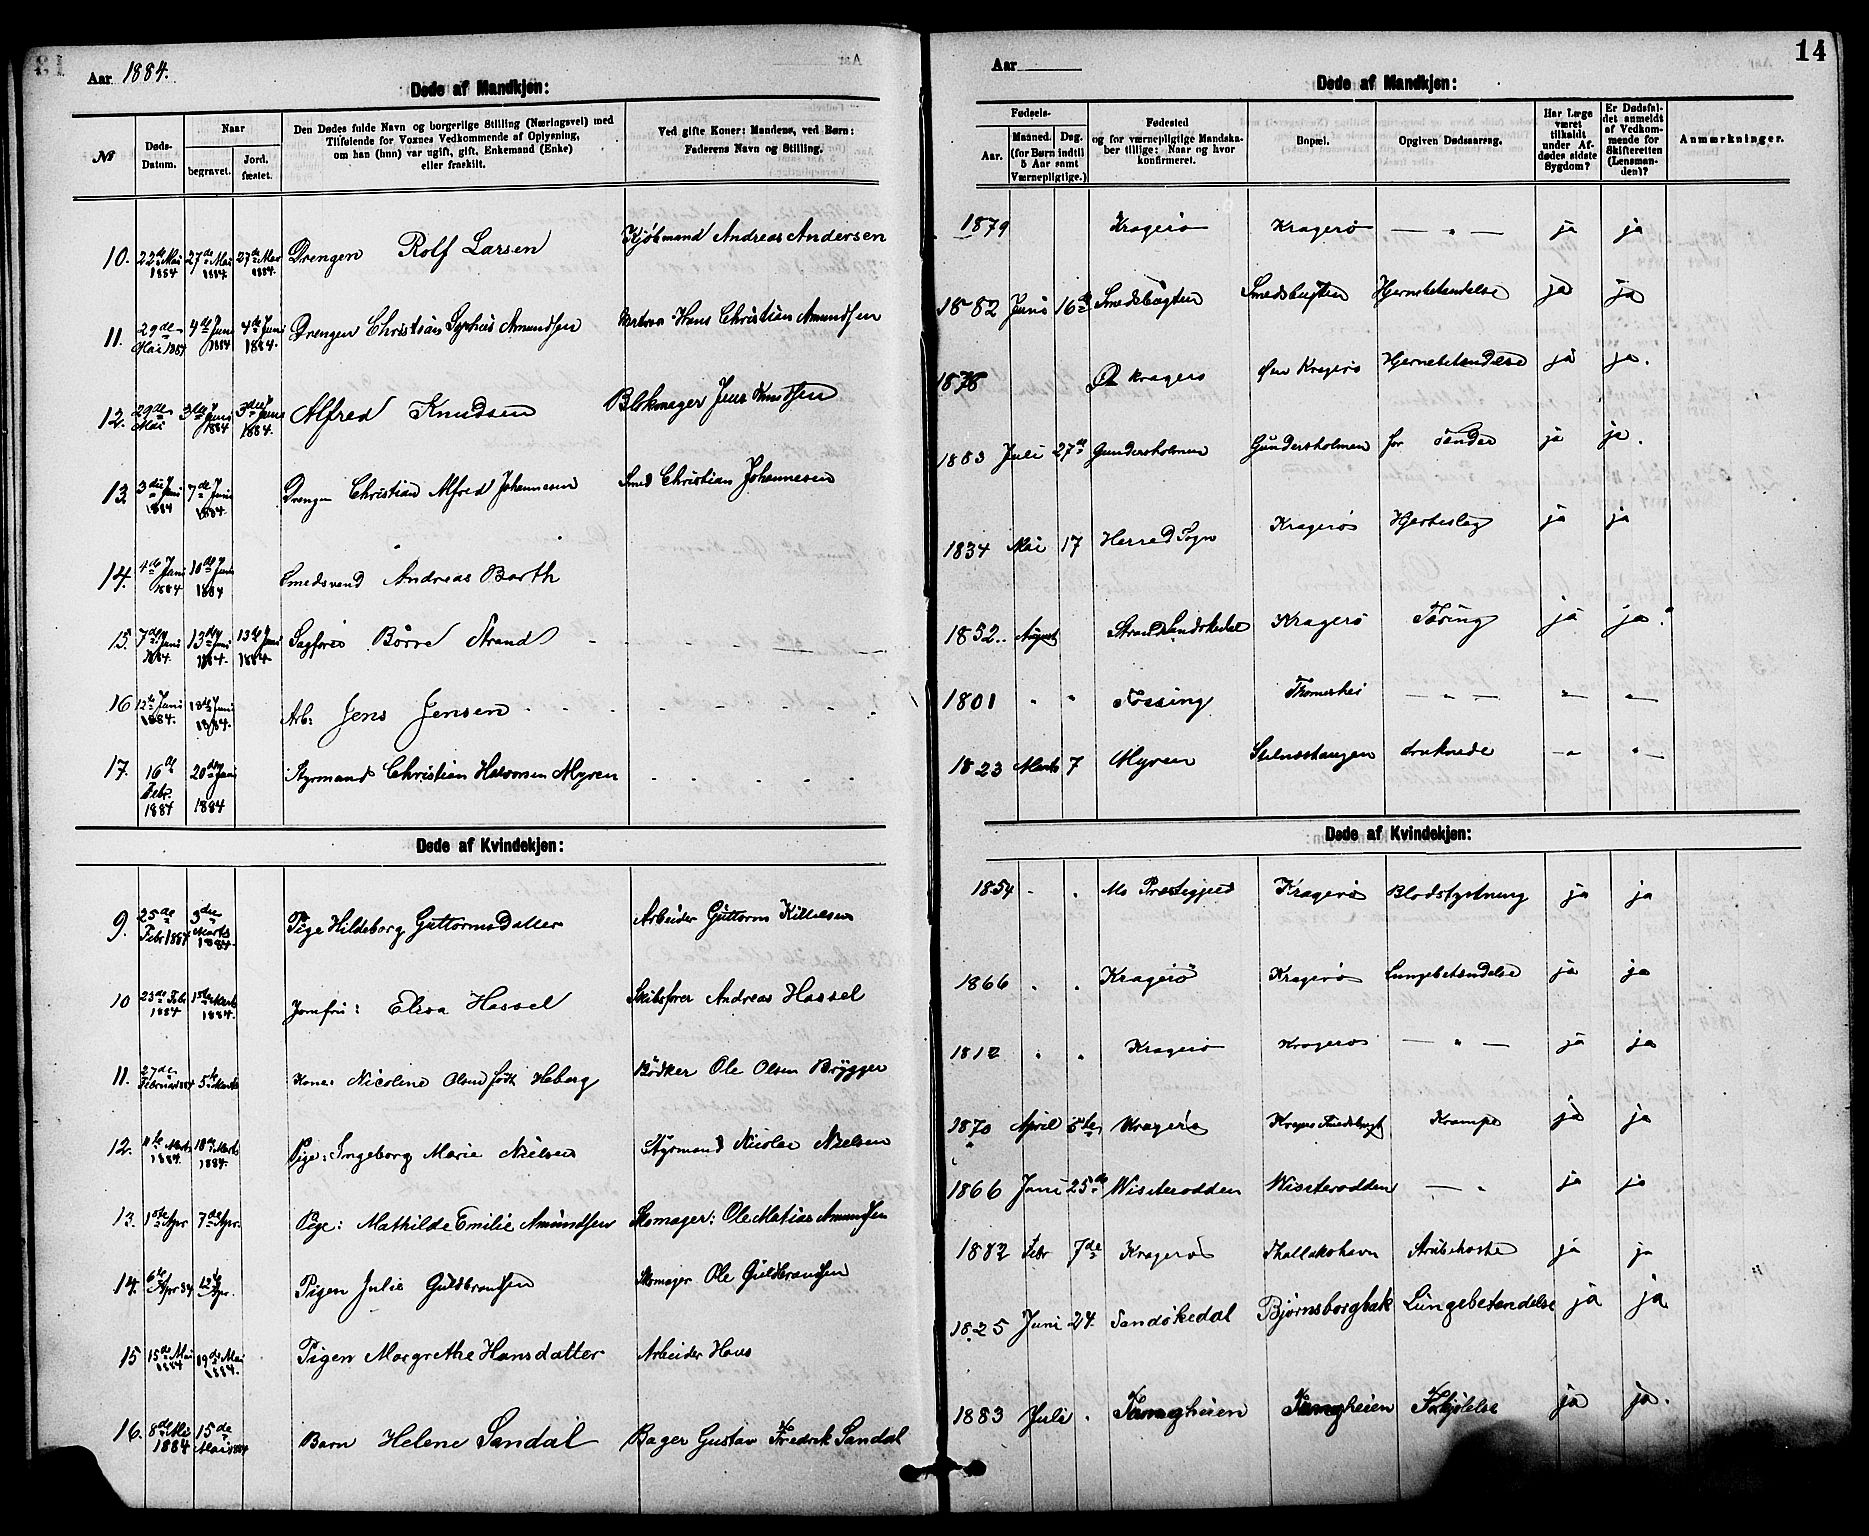 Aar 1884.
Døde af Mandkjøn:
№
Døds-Datum.
Naar
begravet.
Jord-fæstet.
Den Dødes fulde Navn og borgerlige Stilling (Næringsvei) med
Tilføiende for Voxnes Vedkommende af Oplysning,
om han (hun) var ugift, gift, Enkemand (Enke)
eller fraskilt.
Ved gifte Koner: Mandens, ved Børn:
Faderens Navn og Stilling.
10. 22de Mai 1884 27de Mai 1884 27de Mai 1884. Drengen Rolf Larsen Kjøbmand Andreas Andersen
11. 29de Mai 1884 4de Juni 1884 4de Juni 1884. Drengen Christian Amundsen Hans Christian Amundsen
12. 29de Mai 3die Juni 1884 3die Juni 1884. Alfred Knudsen Blokmager Jens Knudsen
13. 3die Juni 1884 7de Juni 1884. Drengen Christian Alfred Johannesen Smed Christian Johannesen
14. 4de Juni 1884 10de Juni 1884 Smedsvend Andreas Barth
15. 7de Juni 1884. 13de Juni 1884. 13de Juni 1884 Børre Strand
16 12te Juni 1884. 18de Juni 1884. Arb: Jens Jensen
17. 16de Febr. 1884 20de Juni 1884 Styrmand Christian Halvorsen Myren
Døde af Kvindekjøn:
9. 25de Febr 1884 3die Marts 1884. Pige Hildeborg Guttormsdatter Arbeider Guttorm Kittelsen
10 23de Febr 1884 1ste Marts 1884. Jomfru: Elisa Hassel Skibsfører Andreas Hassel
11. 27de Februar 1884 5te Marts Kone: Nicoline Olsen født Heberg Bødker Ole Olsen Brygger
12. 4de Marts 1884. 10de Marts 1884. Pige: Ingeborg Marie Nielsen Styrmand Nicolai Nielsen
13. 1ste Apr 7de Apr. Pige: Mathilde Emilie Amundsen Skomager: Ole Matias Amundsen
14. 6te Apr 84 12te Apr. Pigen Julie Guldbrandsen Skomager Ole Guldbrandsen
15 15de Mai 1884 19de Mai 1884. Pigen Margrethe Hansdatter Arbeider Hans
16. 8de Mai 1884 15de Mai 1884 Barn Helene Sandal Bager Gustav Fredrik Sandal
14
Aar
Døde af Mandkjøn:
Fødsels-
Aar.
Maaned. Dag.
(for Børn indtil
5 Aar samt
Værnepligtige.)
Fødested
og for værnepligtige Mandska-
ber tillige: Naar og hvor
konfirmeret.
Bopæl.
Opgiven Dødsaarsag.
Har Læge
været
tilkaldt
under Af-
dødes sidste
Sygdom?
Er Dødsfal-
det anmeldt
af Vedkom-
mende for
Skifteretten
(Lensman-
den)?
Anmærkninger.
1879 Kragerø Kragerø — " — ja ja
1882 Juni 16de Smedsbugten Smedsbugten Hjernebetændelse ja ja
1878 Kragerø Kragerø Hjernebetændelse ja ja.
1883 Juli 27de Gundersholmen Gundersholmen for Tænder ja ja.
1834 Mai 17 Herred Sogn Kragerø Hjerteslag ja ja
1852. August Sandøkedal Kragerø Tæring ja ja.
1801 " " Tossing — " — " — " —
1823 Marts 7 Myren Stilnestangen druknede — " " —
Døde af Kvindekjøn:
1854 " " Mo Præstegjeld Kragerø Blodstyrtning ja ja
1866 " " Kragerø Kragerø Lungebetændelse ja ja
1812 " " Kragerø Kragerø — " — ja ja
1870 April 5te Kragerø Krampe ja ja
1866 Juni 25de Wisterodden Wisterodden — " ja ja
1882 Febr 7de Kragerø Thallakshavn Strubehoste ja ja
1825 Juni 24. Sandøkedal Bjørnsborgbak Lungebetændelse ja ja
1883 Juli " Tangheien Tangheien Forkjølelse ja ja.